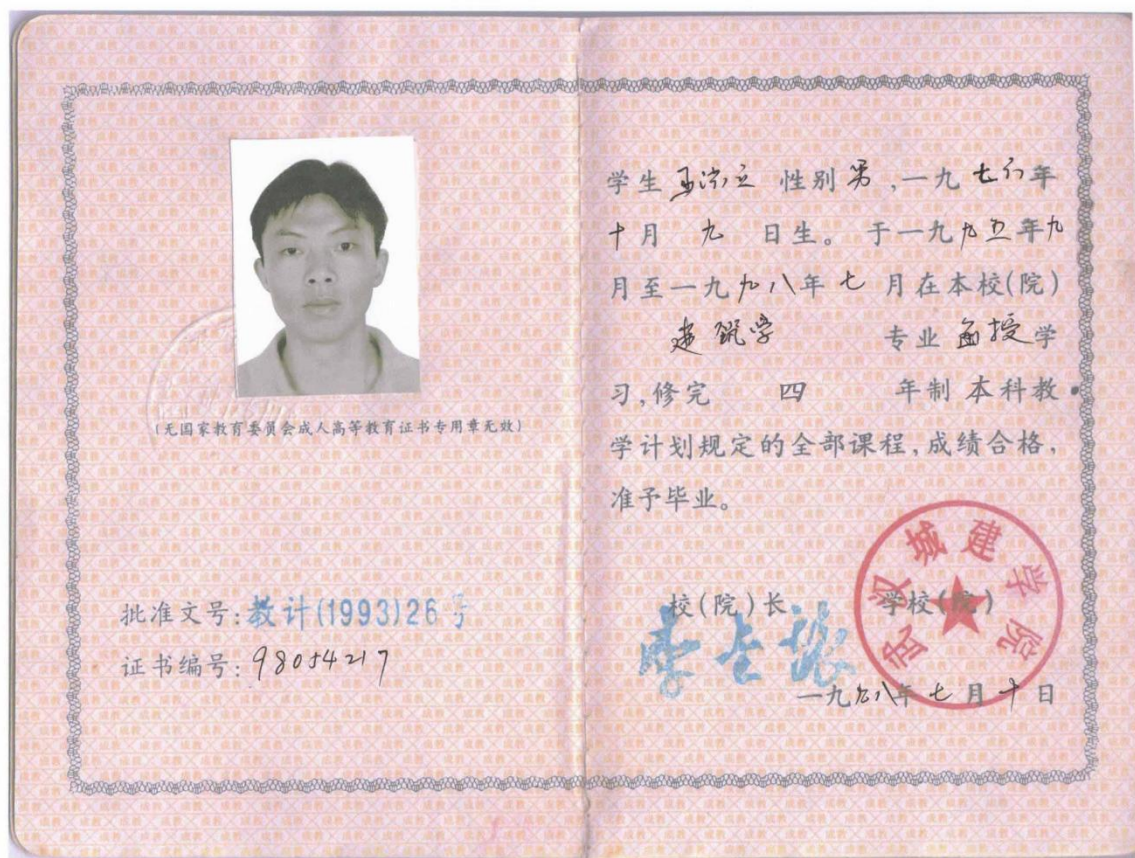 (无国家教育委员会成人高等教育证书专用章无效)
批准文号:教计(1993)26号
证书编号:98054217
学生 王 立 性别 男 ,一九 七六 年
十 月 九 日生。于一九 九五 年 九
月至一九 九八 年 七 月在本校(院)
建筑学 专业 函授 学
习,修完 四 年制 本科教
学计划规定的全部课程,成绩合格,
准予毕业。
校(院)长
学校(院)
武汉城建学院
一九九八年 七 月 十 日